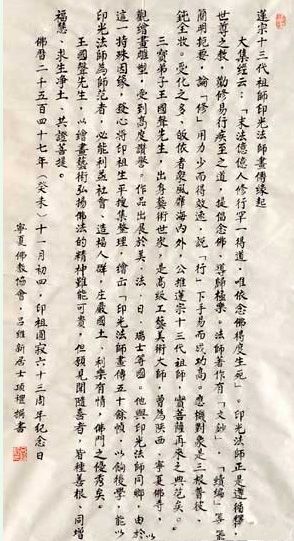 蓮宗十三代祖師印光法師畫傳緣起
大集經云：末法億億人修行罕一得道，唯依念佛得度生死。印光法師正是遵循釋
世尊之教，勸修易行疾至之道，提倡念佛，導歸極樂。法師著作有「文鈔」、「續編」等
簡明扼要，論「修」用力少而得效速，說「行」下手易而成功高。應機對象是三根普被，
鈍全收。受化之多，皈依者眾風靡海內外，公推蓮宗十三代祖師，實菩薩再來之典範矣。
三寶弟子王國聲先生，出身藝術世家，是高級工藝美術大師，曾為陝西、寧夏佛寺，
觀繪畫雕塑，受到高度讚譽。作品出展於美、法、日、瑞士等國。他與印光法師同鄉，由於
這一特殊因緣，發心將印祖生平搜集整理，繪出「印光法師畫傳五十餘幀」，以餉後學，能以
印光法師為師范者，必能利益社會、造福人群，莊嚴國土，利樂有情，佛門之優秀矣。
王國聲先生，以繪畫藝術弘揚佛法的精神難能可貴，但願見聞隨喜者，皆種善根，同增
福慧，求生淨土，共證菩提。
佛曆二千五百四十七年（癸未）十一月初四，印祖圓寂六十三周年紀念日
寧夏佛教協會，呂維新居士頂禮撰書